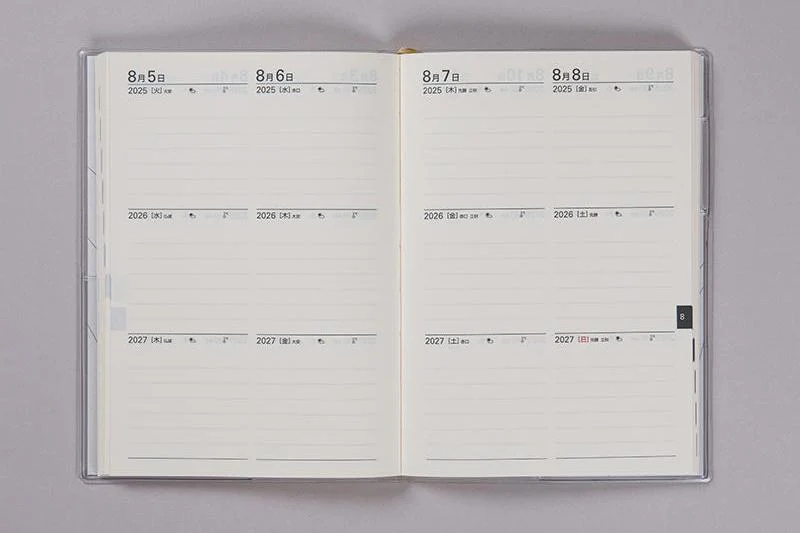 8月5日
2025 [火] 大安
2026 [水] 仏滅
2027 [木] 仏滅
8月6日
2025 [水] 赤口
2026 [木] 大安
2027 [金] 大安
8月7日
2025 [木] 先勝 立秋
2026 [金] 赤口 立秋
2027 [土] 赤口
8月8日
2025 [金] 友引
2026 [土] 先勝
2027 [日] 先勝 立秋
8